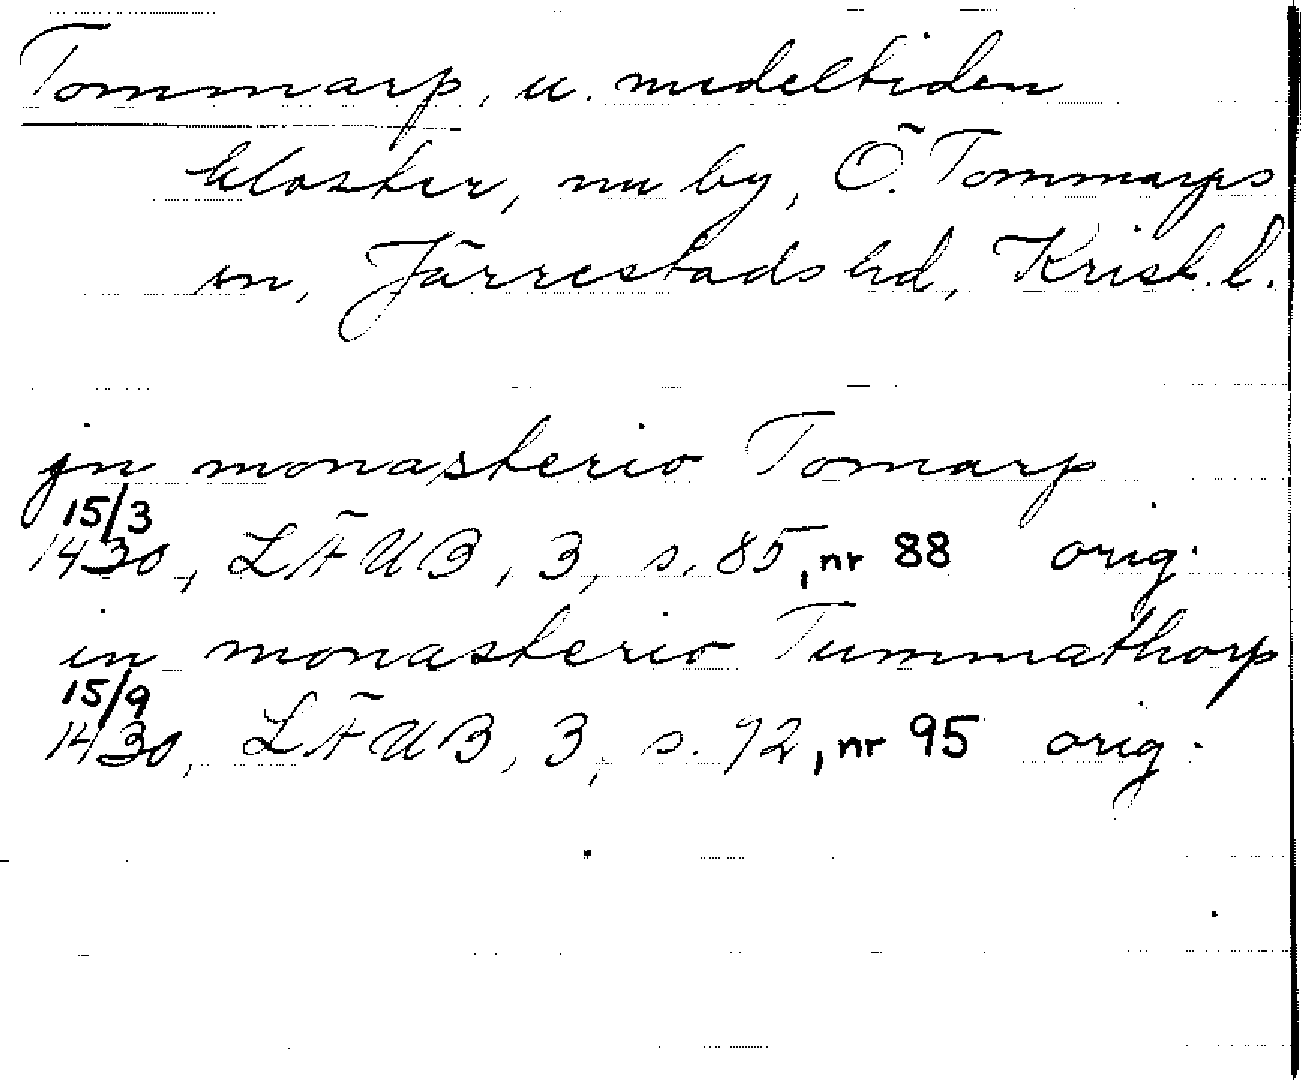 Tommarp, u. medeltiden
kloster, nu by, Ö. Tommarps
sn, Järrestads hd, Krist. l.
jn monasterio Tomarp
15/3
1430, LÄUB, 3, s. 85, nr 88 orig.
in monasterio Tummathorp
15/9
1430, LÄUB, 3, s. 92, nr 95 orig.